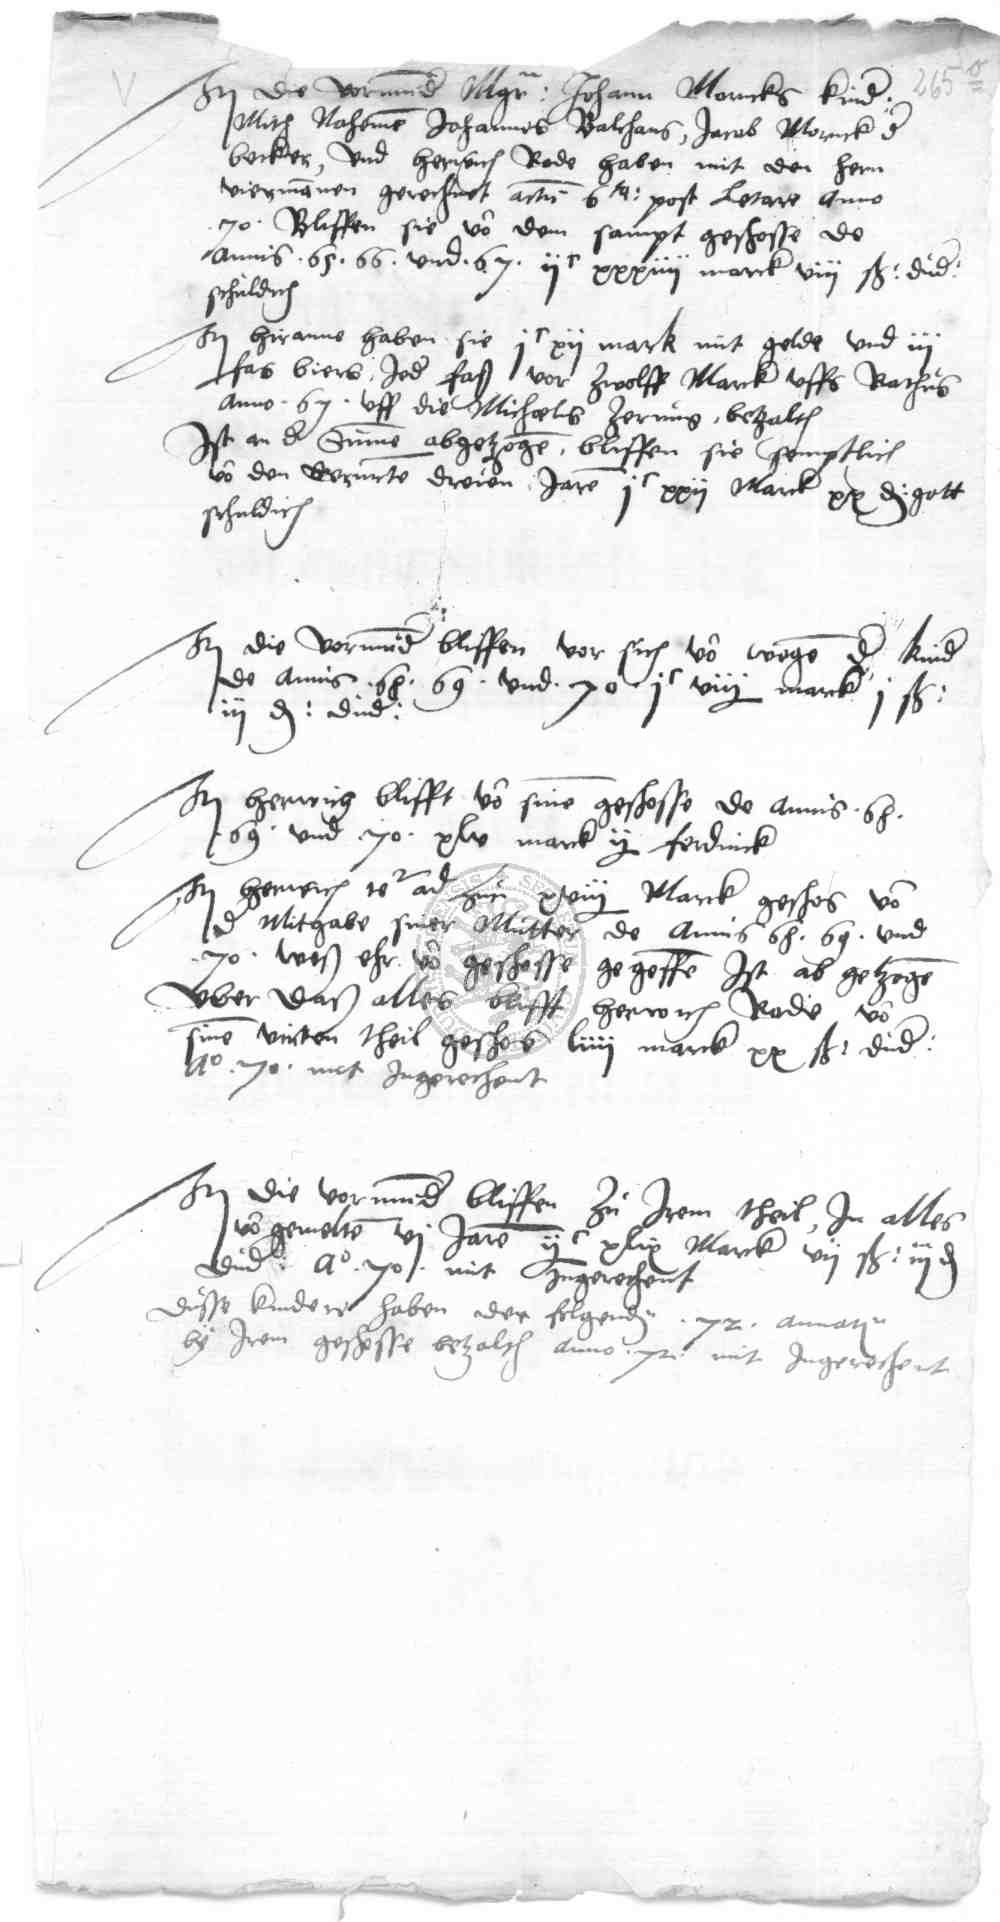 V 265
It die vormund Mgri: Johann Morncks kind:
Mith Nahomen Johannes Balthans, Jacob Mornck d
becker, vnd herwich Rode haben mit den hern
viermannen gerechnet actum 6ta: post Letare anno
.70. Bliffen sie vo dem sampt geschosse de
Annis .65. 66. vnd .67. ijc xxxiiij marck viij ß:
schuldich
It hiranne haben sie jc xij mark mit gelde vnd iij
fas biers, Jed faß vor zwolff Marck vffs Rathus
Anno .67. vff die Michaelis zerung, betzalth
Ist an d Summe abgetzoge, bliffen sie semptlich
vo den dreien Jare jc xxij Marck xx gott
schuldich
It die vormund bliffen vor sich vo wege d kind
de Annis .68. 69. vnd .70. jc viij marck j ß:
iij
It herwich blifft vo sine geschosse de annis .68.
.69. vnd .70. xlv marck ij ferdinck
It herwich xviij Marck geschos vo
d Mitgabe siner Mutter de Annis 68. 69. vnd
.70. weß ehr vo geschosse gegeffe Ist ab getzoge
Vber daß alles blifft herwich Rode vo
sine virten theil geschos liiij marck xx ß:
Ao .70. mit Ingerechent
It die vormund bliffen zu Irem theil, In alles
vo gemelte vj Jare ijc xlix Marck vij ß: iij
Ao .70. mit Ingerechent
Disse kinder haben der folgend .72.
by Irem geschosse betzalth anno .72. mit Ingerechent